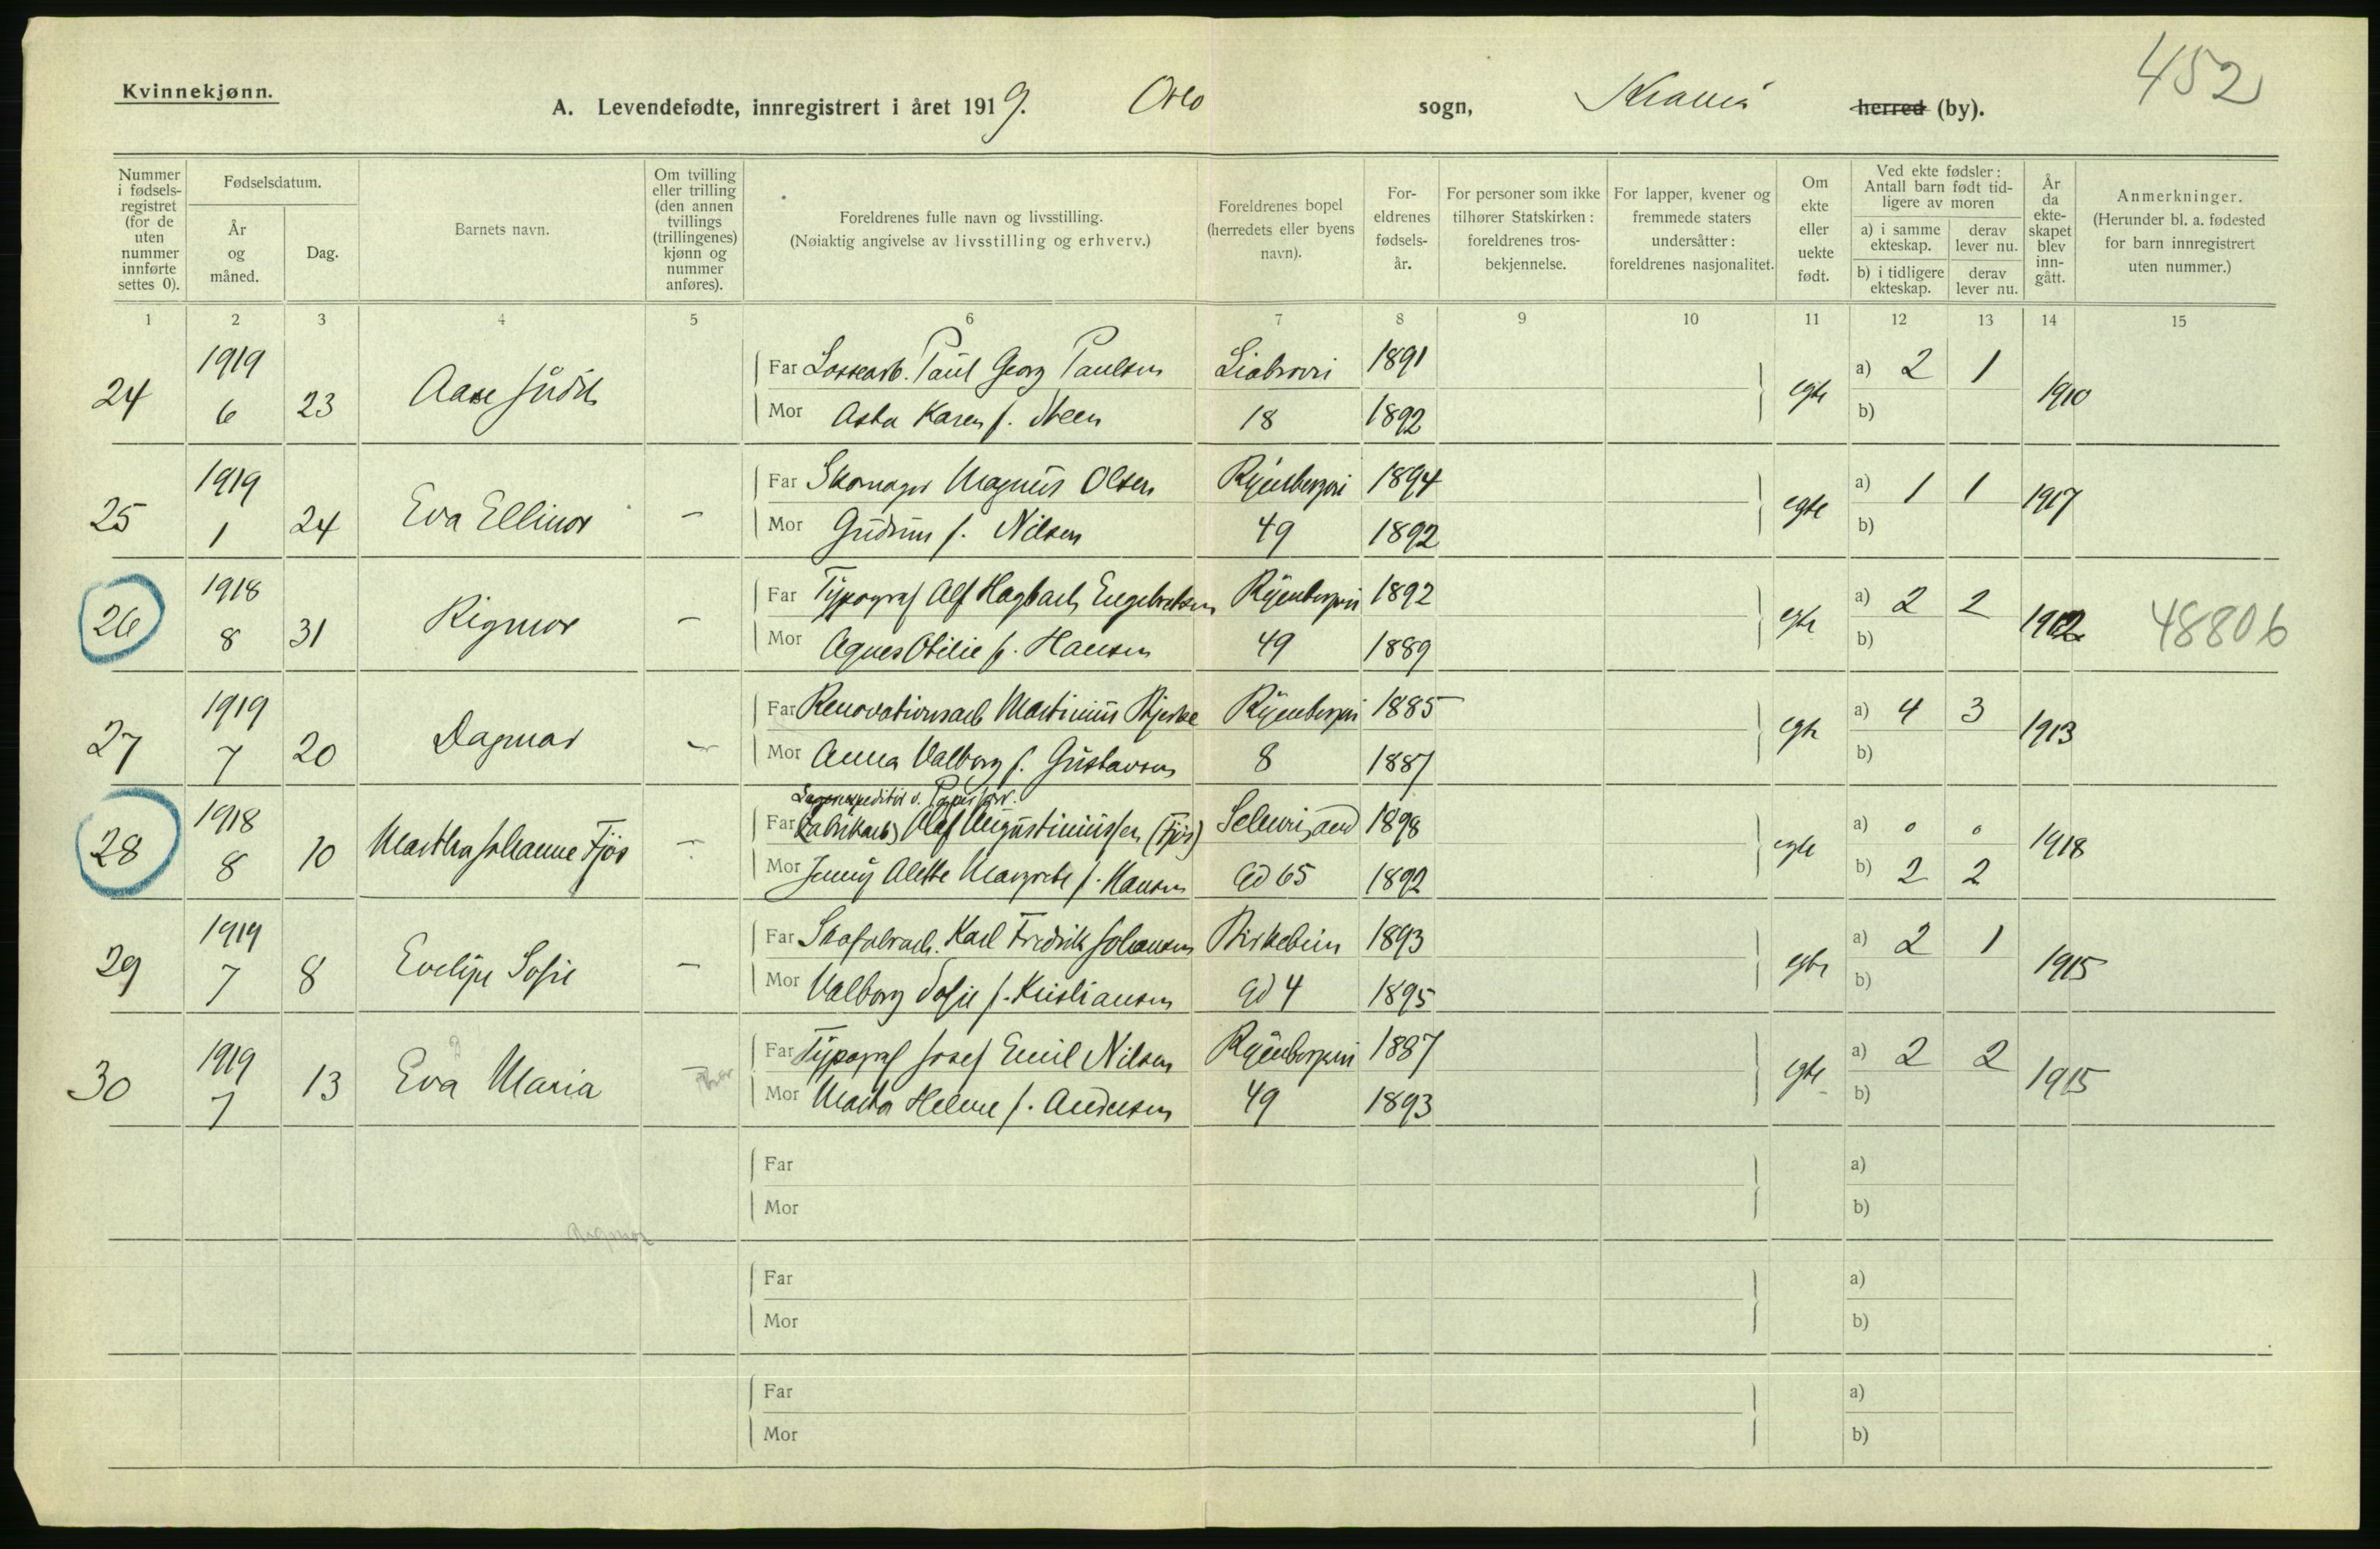 452
Kvinnekjønn.
A. Levendefødte, innregistrert i året 1919. Oslo sogn, Krania herred (by).
Nummer i fødsels-registret (for de uten nummer innførte settes 0).
Fødselsdatum.
År og måned.
Dag.
Barnets navn.
Om tvilling eller trilling (den annen tvillings (trillingenes) kjønn og nummer anføres).
Foreldrenes fulle navn og livsstilling.
(Nøiaktig angivelse av livsstilling og erhverv.)
Foreldrenes bopel (herredets eller byens navn).
For-eldrenes fødsels-år.
For personer som ikke tilhører Statskirken: foreldrenes tros-bekjennelse.
For lapper, kvener og fremmede staters undersåtter: foreldrenes nasjonalitet.
Om ekte eller uekte født.
Ved ekte fødsler: Antall barn født tid-ligere av moren
a) i samme ekteskap.
derav lever nu.
b) i tidligere ekteskap.
derav lever nu.
År da ekte-skapet blev inn-gått.
Anmerkninger.
(Herunder bl. a. fødested for barn innregistrert uten nummer.)
1 2 3 4 5 6 7 8 9 10 11 12 13 14 15
24 1919 6 23 Aase Judit
Far Lossearb. Paul Georg Paulsen Liabrovei 1891 egte a) 2 1 1910
Mor Asta Karen f. Steen 18 1892 b)
25 1919 1 24 Eva Ellinor -
Far Skomager Magnus Olsen Ryenbergvei 1894 egte a) 1 1 1917
Mor Gudrun f. Nilsen 49 1892 b)
26 1918 8 31 Rigmor -
Far Typograf Alf Hagbart Engebretsen Ryenbergvei 1892 egte a) 2 2 1912 48806
Mor Agnes Otilie f. Hansen 49 1889 b)
27 1919 7 20 Dagmar -
Far Renovationsarb Martinius Bjerke Ryenbergvei 1885 egte a) 4 3 1913
Mor Anna Valborg f. Gustavsen 8 1887 b)
28 1918 8 10 Martha Johanne Fjøs -
Lagerexpeditør v. Papirforr.
Far (Fabrikarb) Olaf Augustinussen (Fjøs) Schweigaard 1898 egte a) 0 0 1918
Mor Jenny Alette Margrete f. Hansen Gd 65 1892 b) 2 2
29 1919 7 8 Evelyn Sofie -
Far Skofabrarb. Karl Fredrik Johansen Birkebein 1893 egte a) 2 1 1915
Mor Valborg Sofie f. Kristiansen Gd 4 1895 b)
30 1919 7 13 Eva Maria -
Far Typograf Josef Emil Nilsen Ryenbergvei 1887 egte a) 2 2 1915
Mor Marta Helene f. Andersen 49 1893 b)
Far a)
Mor b)
Rigmor
Far a)
Mor b)
Far a)
Mor b)